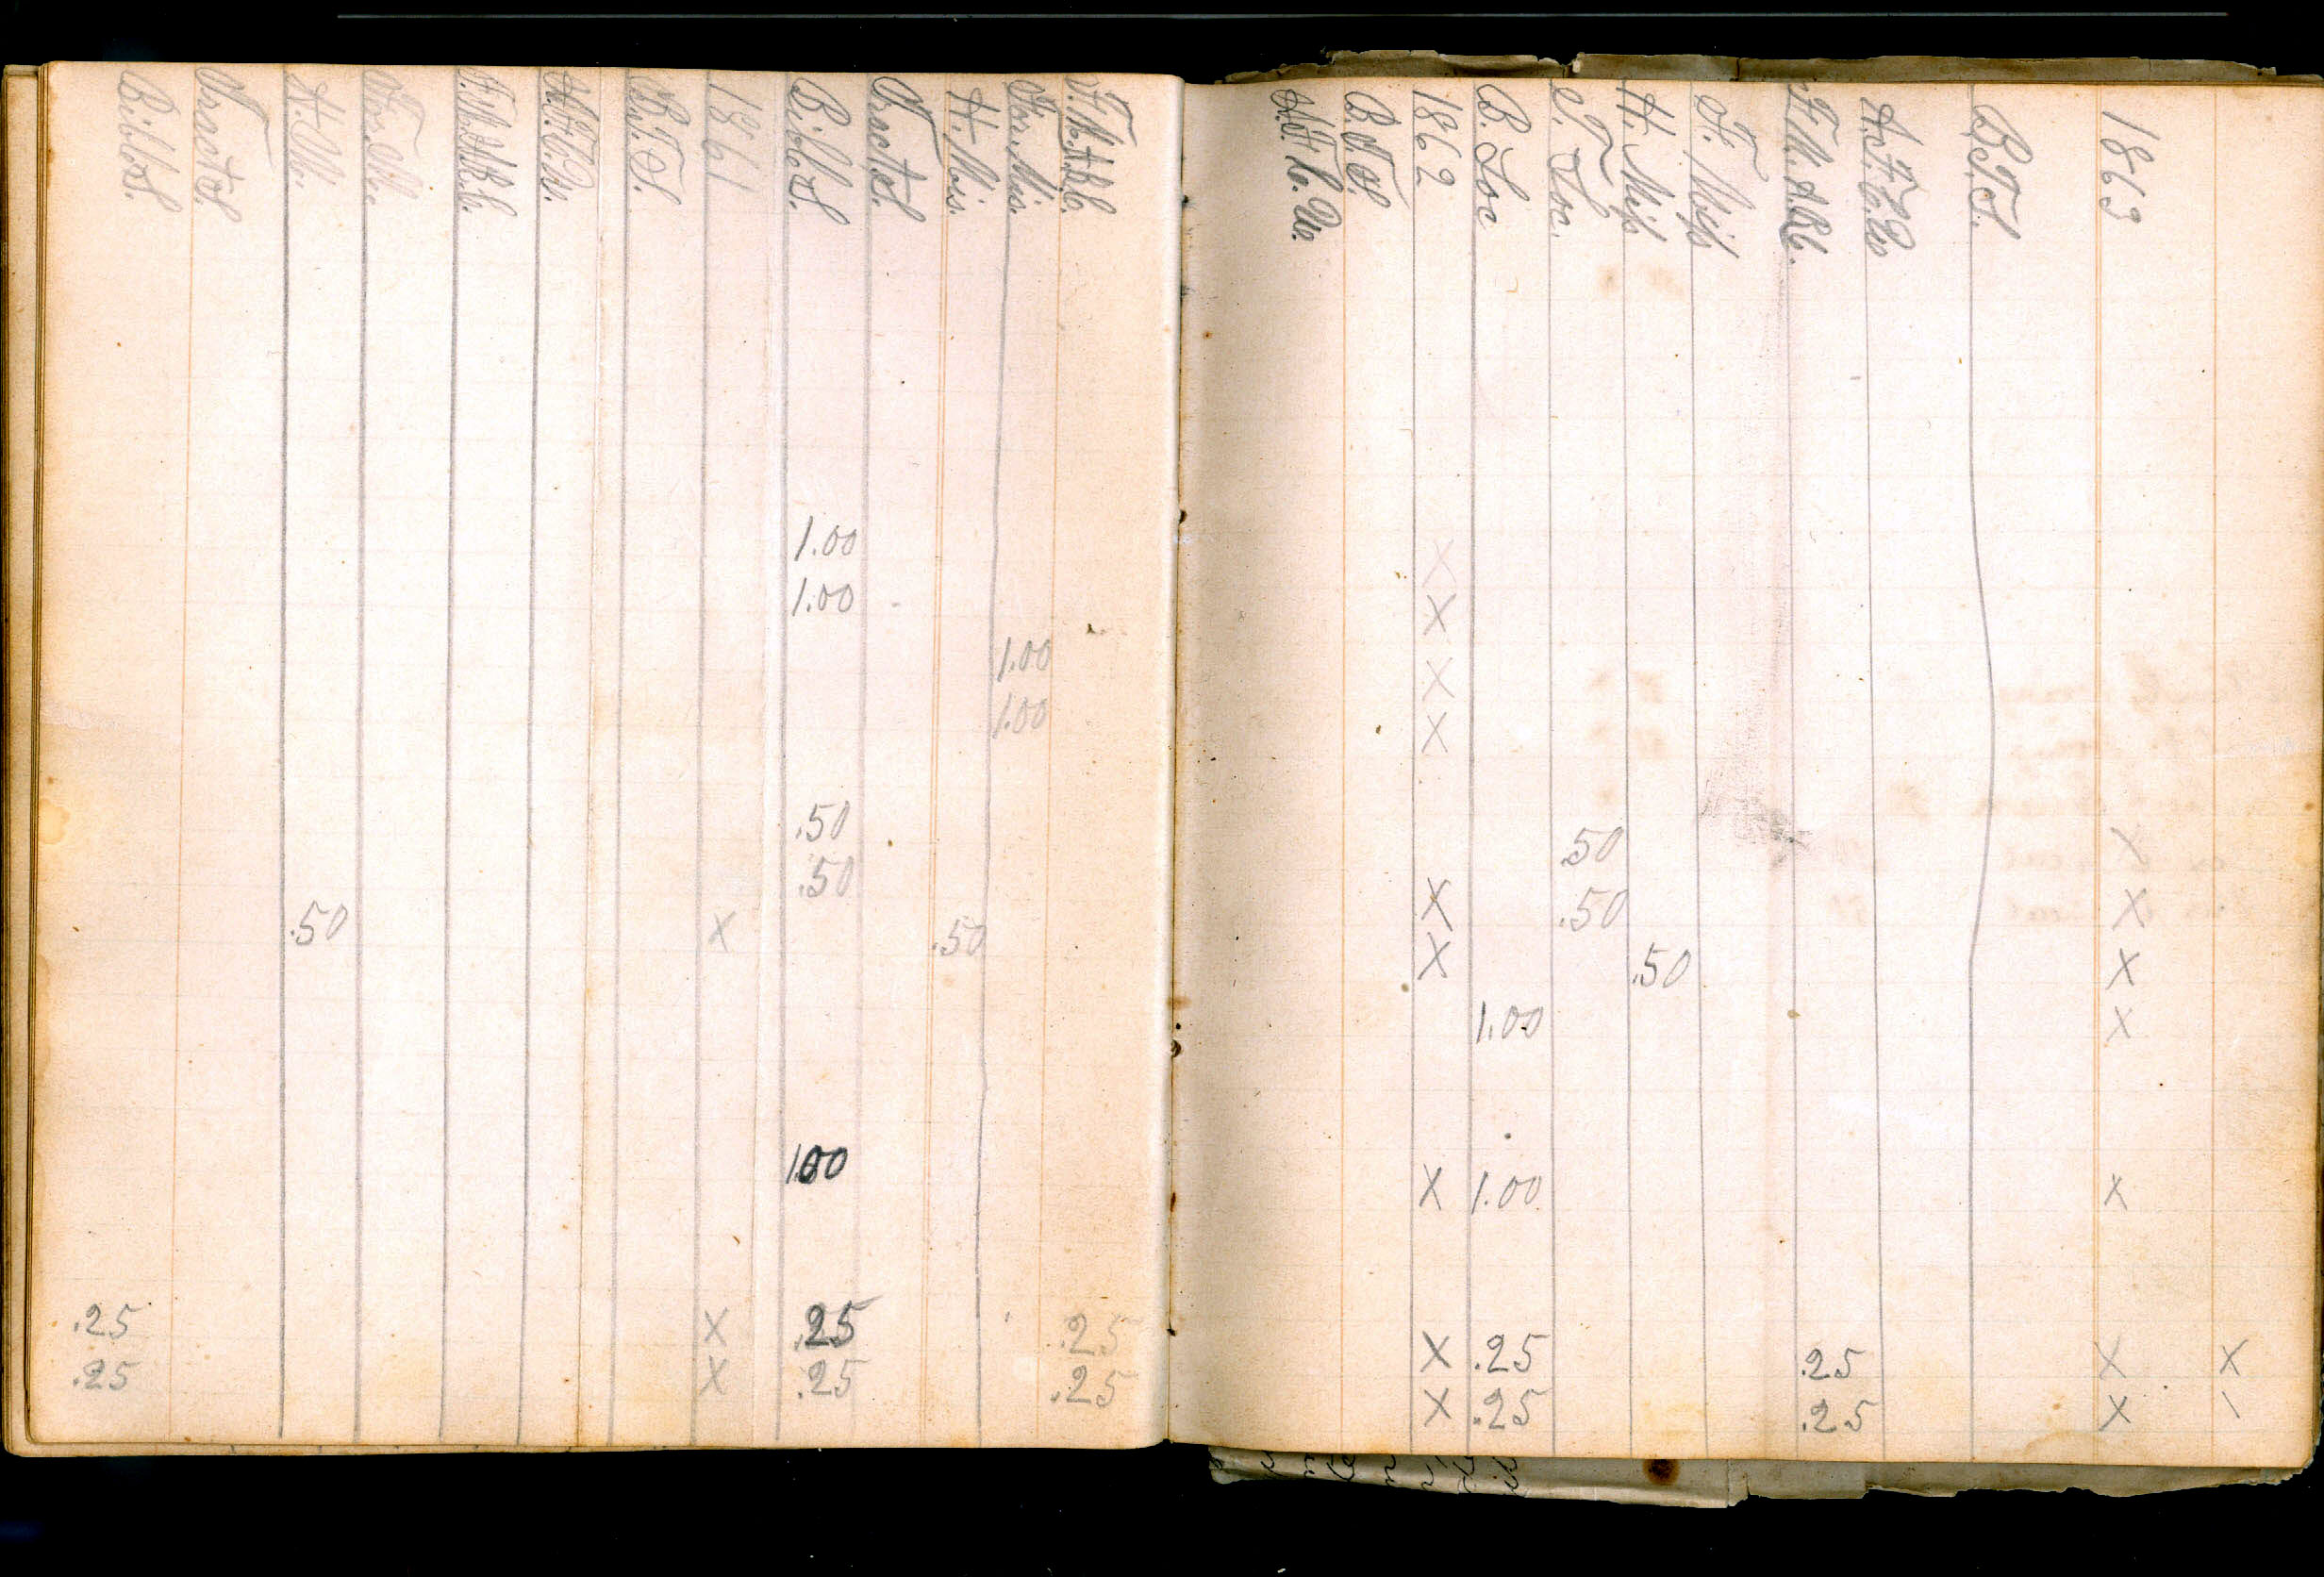 Bible S.
Tract S.
H. M.
For. M.
B. T. S.
1861
Bible S.
Tract S.
H. Mis.
For. Mis.
1.00
1.00
1.00
1.00
.50
.50
.50 X .50
1.00
.25 X .25 .25
.25 X .25 .25
B. T. S.
1862
B. Soc
T. Soc.
H. Miss
F. Miss
B. T. S.
1863
X
X
X
X
.50 X
X .50 X
X .50 X
1.00 X
X 1.00 X
X .25 .25 X X
X .25 .25 X \